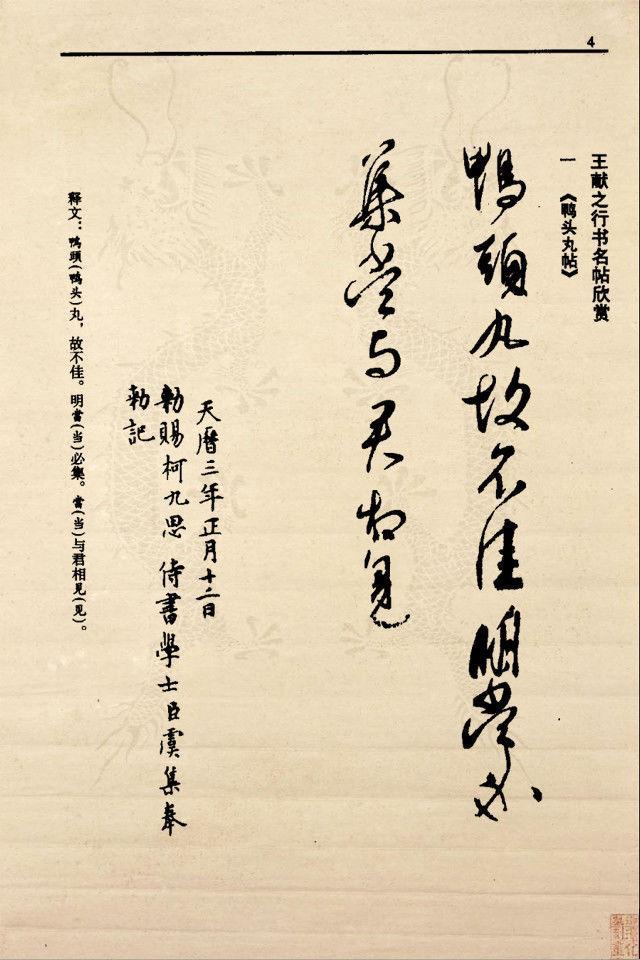 4
王献之行书名帖欣赏
一 《鸭头丸帖》
鴨頭丸故不佳明當必
集當与君相見
天曆三年正月十二日
勑賜柯九思侍書學士臣虞集奉
勑記
释文：鴨頭(鸭头)丸，故不佳。明當(当)必集。當(当)与君相見(见)。